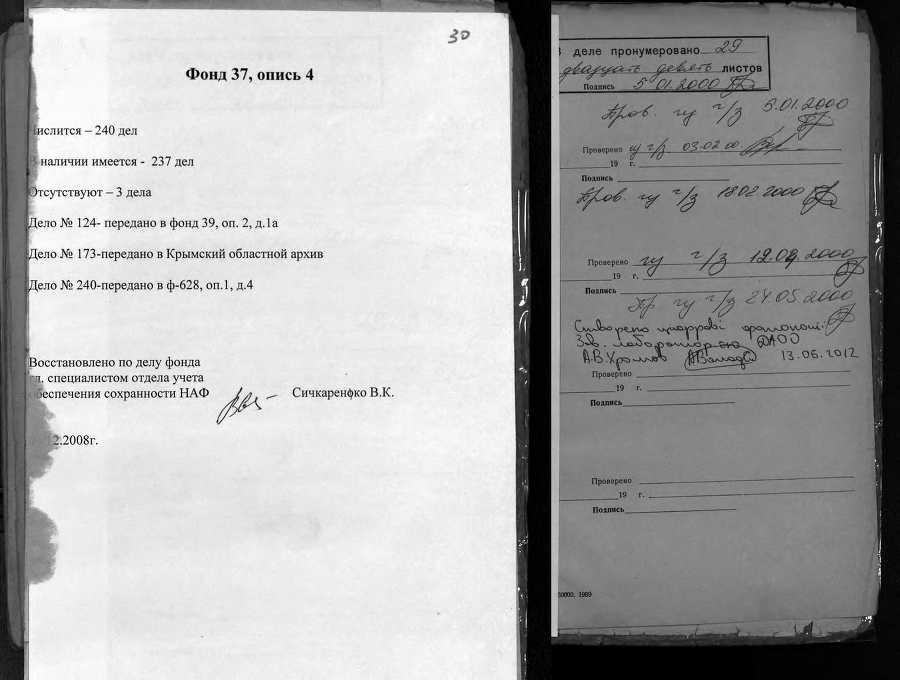 30
Фонд 37, опись 4
числится – 240 дел
В наличии имеется - 237 дел
Отсутствуют – 3 дела
Дело № 124- передано в фонд 39, оп. 2, д.1а
Дело № 173-передано в Крымский областной архив
Дело № 240-передано в ф-628, оп.1, д.4
Восстановлено по делу фонда
гл. специалистом отдела учета
обеспечения сохранности НАФ Сичкаренфко В.К.
12.2008г.
В деле пронумеровано 29
двадцать девять листов
Подпись 5 01.2000
Пров. гу г/з 5.01.2000
Проверено гу г/з 03.02 00.
19 г.
Подпись
Пров. гу г/з 18 02 2000
Проверено гу г/з 2000
19 г.
Подпись
Пр гу г/з 24.05 2000
Створено цифрові фотокопії.
Зав. лабораторією ДАОО
А.В. 13.06.2012
Проверено
19 г.
Подпись
Проверено
19 г.
Подпись
1989